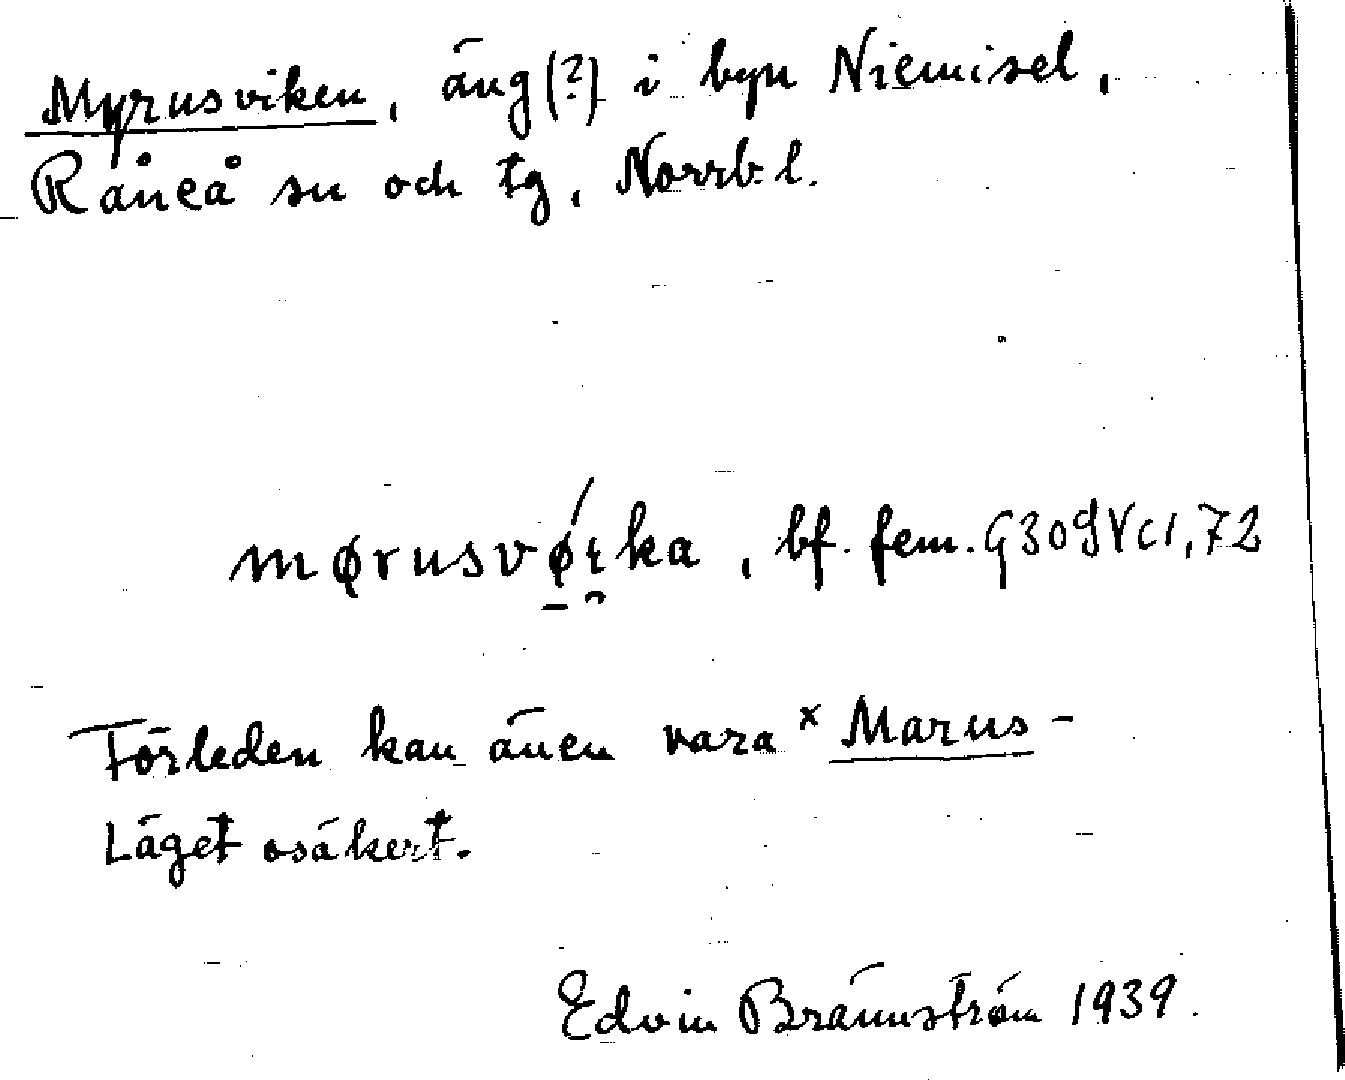 Myrusviken, äng(?) i byn Niemisel,
Råneå sn och tg, Norrb. l.
mørusvǿɩka, bf. fem. G309VC1,72
Förleden kan även vara ˣMarus-
Läget osäkert.
Edvin Brännström 1939.